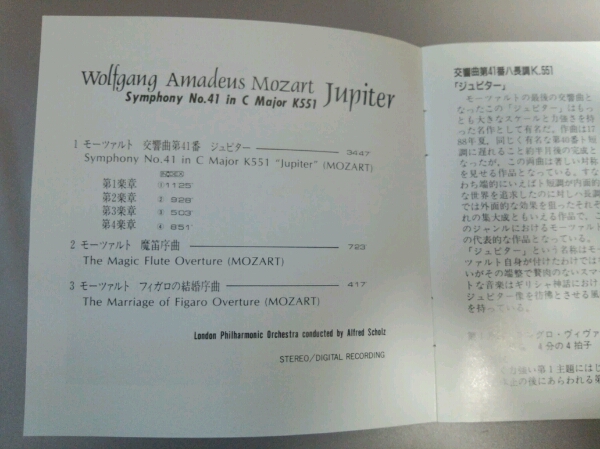 Wolfgang Amadeus Mozart Jupiter
Symphony No.41 in C Major K551
1 モーツァルト 交響曲第41番 ジュピター 3447
Symphony No.41 in C Major K551 "Jupiter" (MOZART)
第1楽章 ①1125
第2楽章 ② 928
第3楽章 ③ 503
第4楽章 ④ 851
2 モーツァルト 魔笛序曲 723
The Magic Flute Overture (MOZART)
3 モーツァルト フィガロの結婚序曲 417
The Marriage of Figaro Overture (MOZART)
London Philharmonic Orchestra conducted by Alfred Scholz
STEREO/DIGITAL RECORDING
交響曲第41番ハ長調K.551
「ジュピター」
モーツァルトの最後の交響曲と
なったこの「ジュピター」はもっ
とも大きなスケールと力強さを持
った名作として有名だ。作曲は17
88年夏。同じく有名な第40番ト短
調に遅れること約半月後の完成と
なったが、この両曲は著しい対称
を見せる作品となっている。すな
わち端的にいえばト短調が内面的
な世界を追求したのに対しハ長調
では外面的な効果を狙ったそれぞ
れの集大成ともいえる作品で、こ
のジャンルにおけるモーツァルト
の代表的な作品となっている。
「ジュピター」という名称はモー
ツァルト自身が付けたわけではな
いがその端整で贅肉のないスマー
トな音楽はギリシャ神話におけ
ジュピター像を彷彿とさせる風
を持っている。
グロ・ヴィヴァ
4分の4拍子
強い第1主題にはじ
止の後にあらわれる第